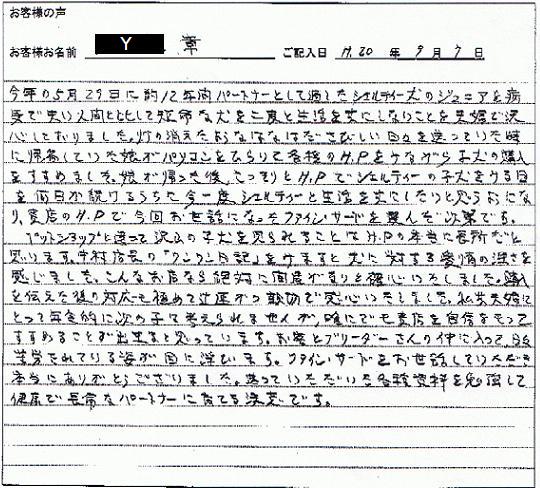 お客様の声
お客様お名前 Y 章 ご記入日 H.20 年 9 月 7 日
今年の5月29日に約12年間パートナーとして過したシェルティー犬のジュニアを病
で失い人間とと比して短命な犬を二度と生活を共にしないことを夫婦で決
心しておりました。灯の消えたようなはなはださびしい日々を送っていた時
に帰省していた娘がパソコンをひらいて各種のH.Pをみながら子犬の購入
をすすめました。娘が帰った後、たっぷりとH.Pでシェルティーの子犬をみる日
を何日か続けるうちに今一度、シェルティーと生活を共にしたいと思うようにな
り、貴店のH.Pで今回お世話になったファイン・サードを選んだ次第です。
ペットショップと違って沢山の子犬を見られることはH.Pの本当に長所だと
思います。中村店長の「クンクン日記」をみますと犬に対する愛情の深さを
感じました。こんなお店なら絶対に間違が有りと確心いたしました。購入
を伝えた後の対応も極めて迅速かつ親切で感心いたしました。私共夫婦に
とって年令的に次の子は考えられませんが、誰にでも貴店を自信をもって
すすめることが出来ると思っています。お客とブリーダーさんの仲に入って、日々
苦労されている姿が目に浮びます。ファイン・サードをお世話していただき
本当にありがとうございました。送っていただいた各種資料を勉強して
健康で長命なパートナーに育てる決意です。